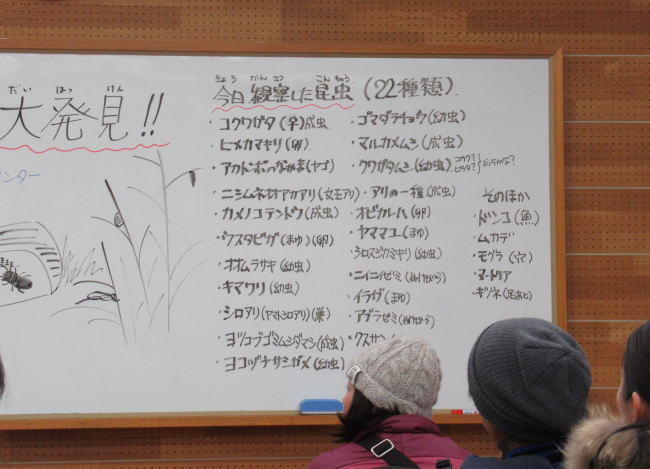 だい はっ けん
大発見!!
ンター
きょう かんさつ こんちゅう
今日観察した昆虫(22種類)
・コクワガタ(♀)成虫
・ヒメカマキリ(卵)
・アカトンボのなかま(ヤゴ)
・ニシムネアカオオアリ(女王アリ)
・カメノコテントウ(成虫)
・ウスタビガ(まゆ)(卵)
・オオムラサキ(幼虫)
・キマワリ(幼虫)
・シロアリ(ヤマトシロアリ)(巣)
・ヨツコブゴミムシダマシ(成虫)
・ヨコヅナサシガメ(幼虫)
・ゴマダラチョウ(幼虫)
・マルカメムシ(成虫)
・クワガタムシ(幼虫)コクワ?ヒラタ?どっちかな?
・アリの一種(成虫)
・オビカレハ(卵)
・ヤママユ(まゆ)
・シロスジカミキリ(幼虫)
・ニイニイゼミ(ぬけがら)
・イラガ(まゆ)
・アブラゼミ(ぬけがら)
・クスサン
そのほか
・ドンコ(魚)
・ムカデ
・モグラ(穴)
・ヌートリア
・キツネ(足あと)